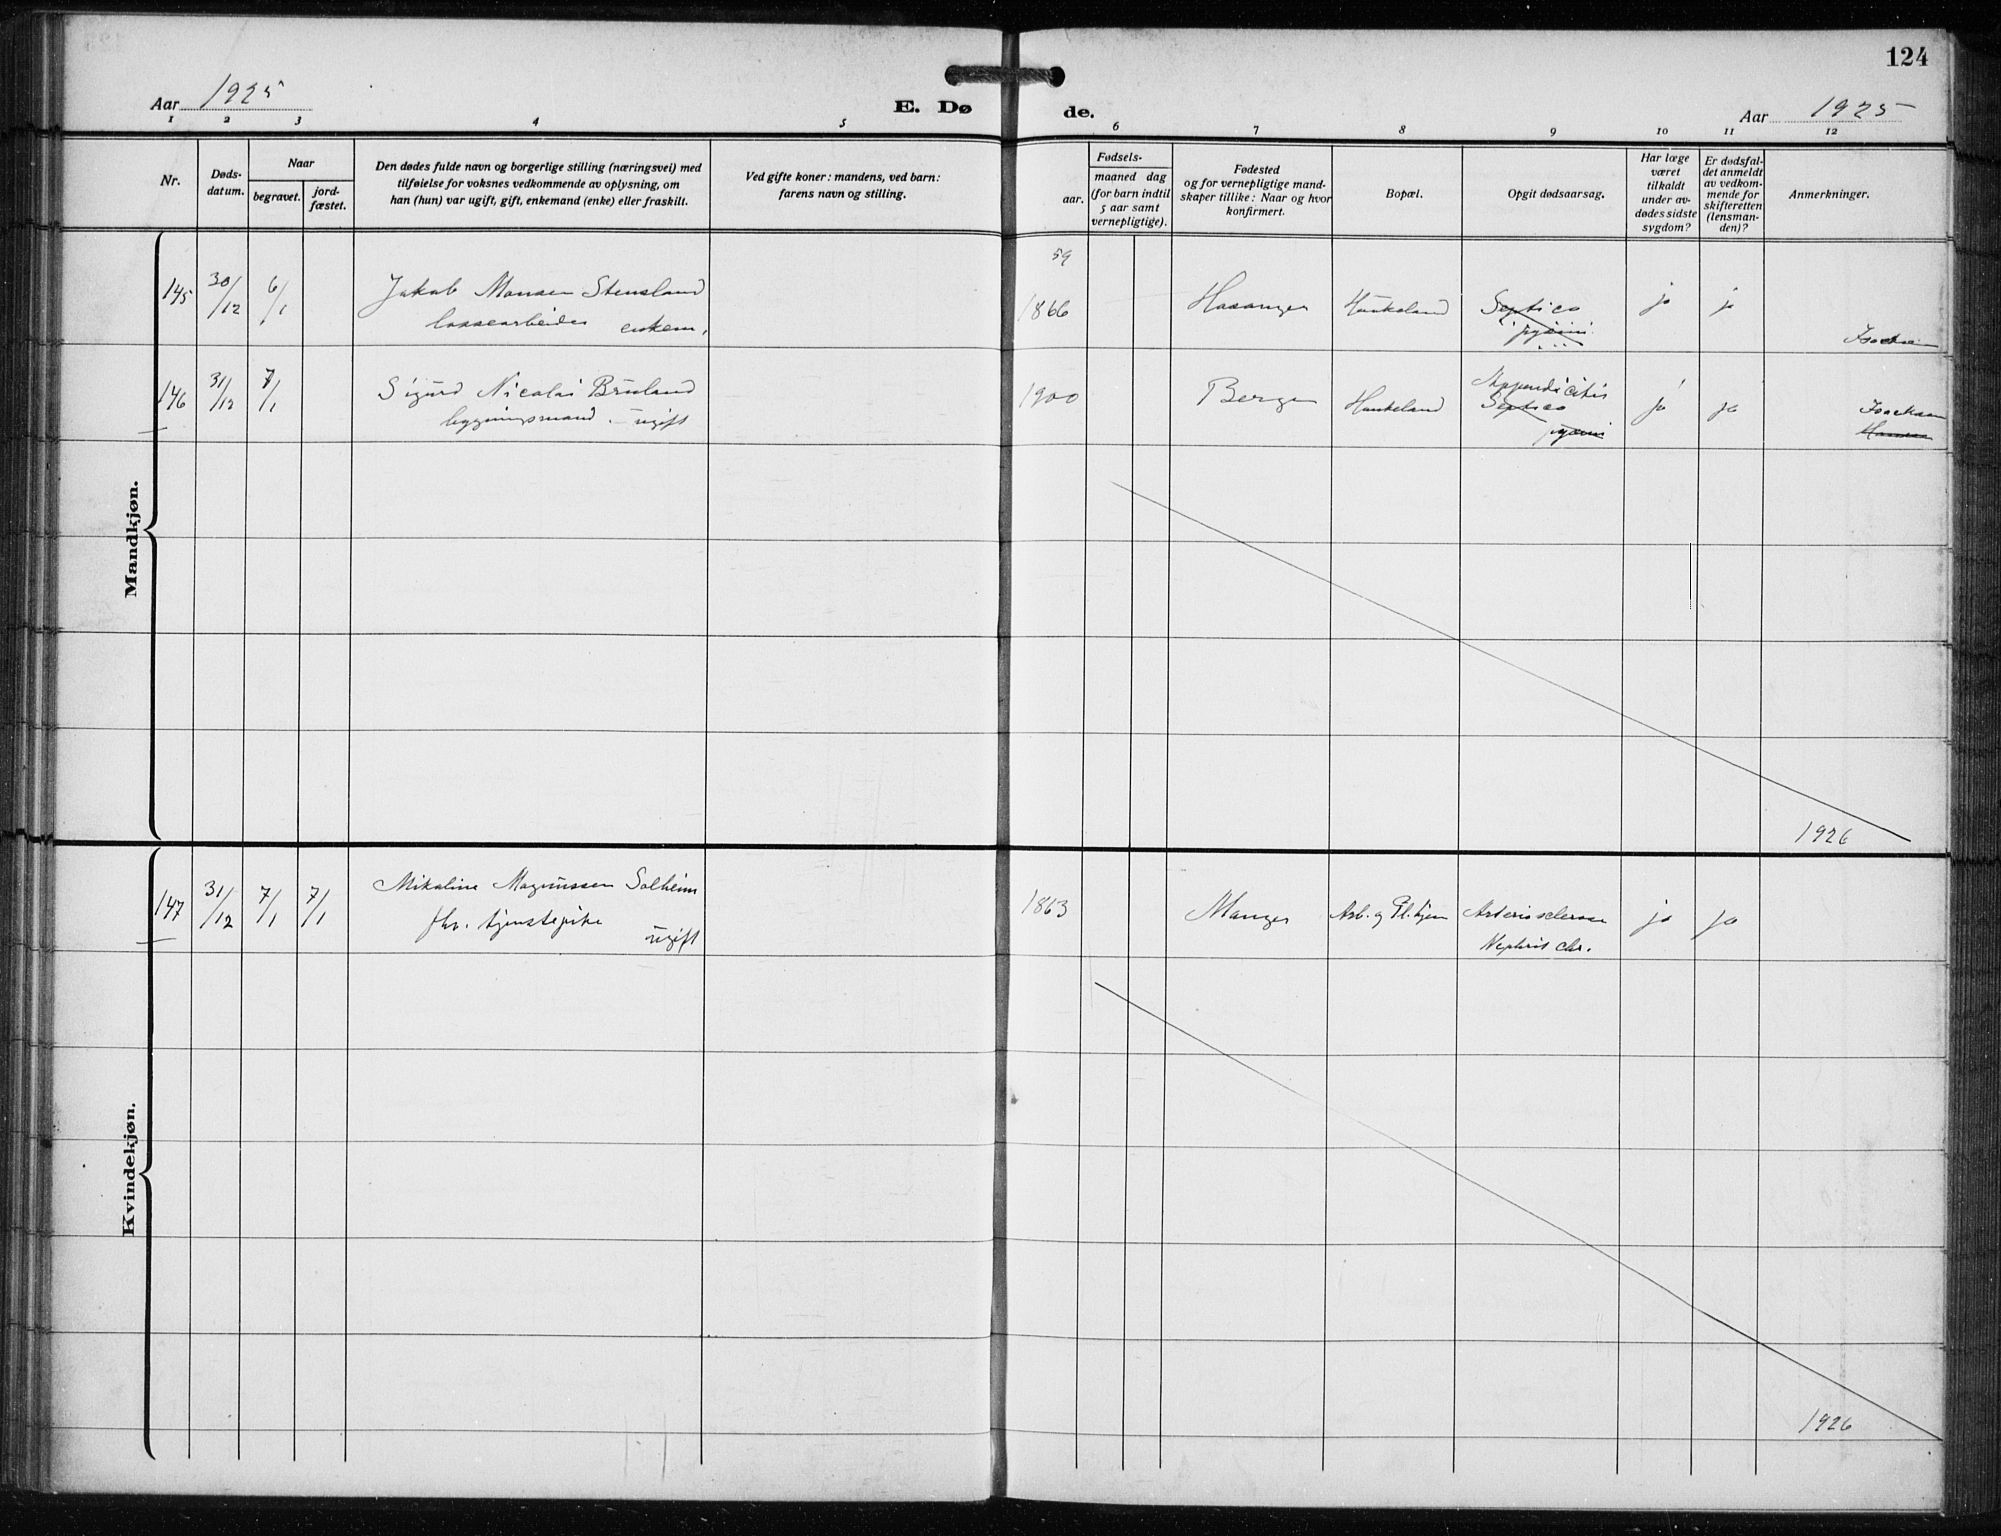 124
Aar 1925
E. Dø de.
Aar 1925
1 2 3 4 5 6 7 8 9 10 11 12
Nr.
Døds-
datum.
Naar
begravet.
jord-
fæstet.
Den dødes fulde navn og borgerlige stilling (næringsvei) med
tilføielse for voksnes vedkommende av oplysning, om
han (hun) var ugift, gift, enkemand (enke) eller fraskilt.
Ved gifte koner: mandens, ved barn:
farens navn og stilling.
Fødsels-
aar.
maaned dag
(for barn indtil
5 aar samt
vernepligtige).
Fødested
og for vernepligtige mand-
skaper tillike: Naar og hvor
konfirmert.
Bopæl.
Opgit dødsaarsag.
Har læge
været
tilkaldt
under av-
dødes sidste
sygdom?
Er dødsfal-
det anmeldt
av vedkom-
mende for
skifteretten
(lensman-
den)?
Anmerkninger.
Mandkjøn.
59
145 30/12 6/1 Jakob Monsen Stensland 1866 Haukeland Septico ja ja
enkem. pyæmi
146 31/12 7/1 Sigurd Nicolai Bruland 1900 Bergen Haukeland Appendicitis ja ja Isachsen
bygningsmand. – ugift Septico
pyæmi
1926
Kvindekjøn.
147 31/12 7/1 7/1 Mikaline Magnussen Solheim 1863 Manger Arb. og Pl.hjem Arteriosclerose ja ja
fhv. tjenstepike ugift Nephrit chr.
1926